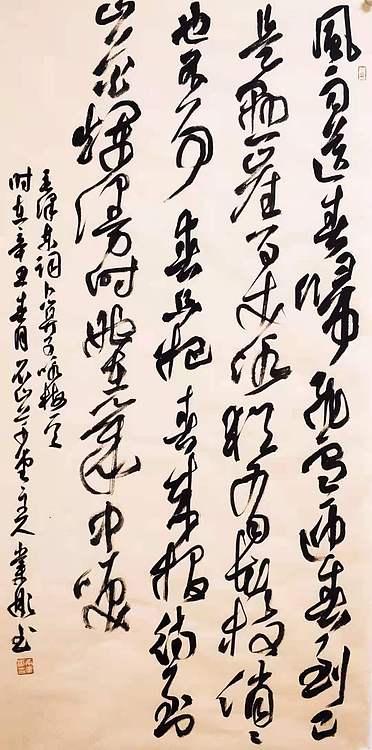 風雨送春歸飛雪迎春到已
是懸崖百丈冰猶有花枝俏〻
也不爭春只把春來報待到
山花爛漫時她在叢中咲
毛澤东詞卜算子咏梅
时在辛丑春月 主人 书